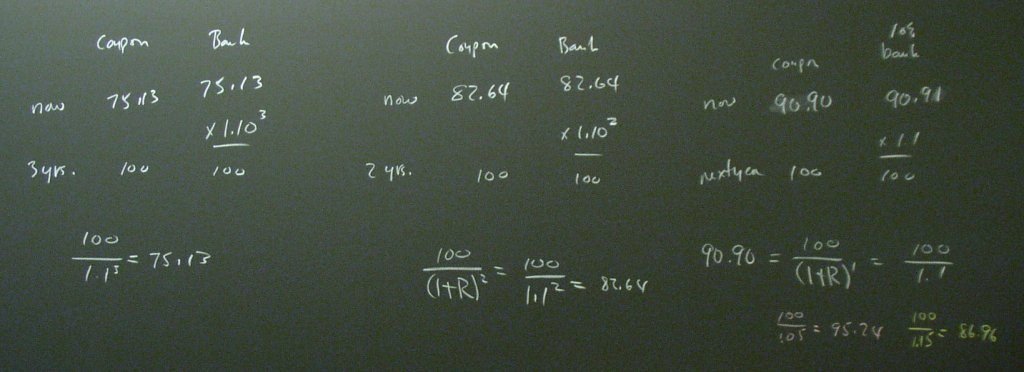 Coupon Bank
now 75.13 75.13
x 1.10³
3 yrs. 100 100
100/1.1³ = 75.13
Coupon Bank
now 82.64 82.64
x 1.10²
2 yrs. 100 100
100/(1+R)² = 100/1.1² = 82.64
10%
coupn bank
now 90.90 90.91
x 1.1
next year 100 100
90.90 = 100/(1+R)¹ = 100/1.1
100/1.05 = 95.24 100/1.15 = 86.96